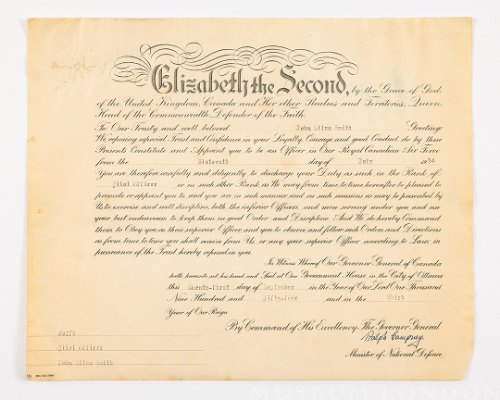 Elizabeth the Second, by the Grace of God,
of the United Kingdom, Canada and Her other Realms and Territories, Queen,
Head of the Commonwealth, Defender of the Faith.
To Our Trusty and well beloved John Smith Greeting:
We reposing especial Trust and Confidence in your Loyalty, Courage and good Conduct do by these
Presents Constitute and Appoint you to be an Officer in Our Royal Canadian Air Force
from the Sixteenth day of July 1954
You are therefore carefully and diligently to discharge your Duty as such in the Rank of
Pilot Officer or in such other Rank as We may from time to time hereafter be pleased to
promote or appoint you to and you are in such manner and in such occasions as may be prescribed by
Us to exercise and well discipline both the inferior Officers and men serving under you and use
your best endeavours to keep them in good Order and Discipline And We do hereby Command
them to Obey you as their superior Officer and you to observe and follow such Orders and Directions
as from time to time you shall receive from Us, or any your superior Officer according to Law, in
pursuance of the Trust hereby reposed in you.
In Witness Whereof Our Governor General of Canada
hath hereunto set his hand and Seal at Our Government House in the City of Ottawa
this Twenty-first day of September in the Year of Our Lord One Thousand
Nine Hundred and Fifty-four and in the Third
Year of Our Reign
By Command of His Excellency The Governor General
Ralph Campney
Minister of National Defence
Pilot Officer
John Smith
MUSEUM LONDON